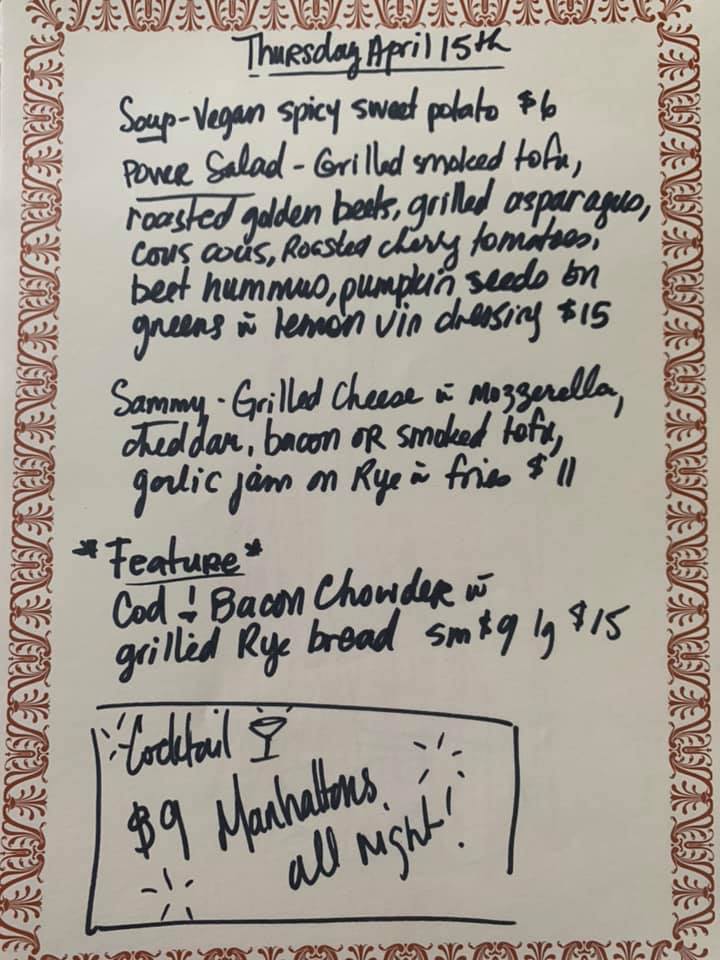 Thursday April 15th
Soup-Vegan spicy sweet potato $6
Power Salad - Grilled smoked tofu,
roasted golden beets, grilled asparagus,
cous cous, Roasted cherry tomatoes,
beet hummus, pumpkin seeds on
greens w lemon vin dressing $15
Sammy - Grilled Cheese w Mozzerella,
cheddar, bacon OR smoked tofu,
garlic jam on Rye w fries $11
*Feature*
Cod + Bacon Chowder w
grilled Rye bread sm $9 lg $15
Cocktail
$9 Manhattans,
all night!